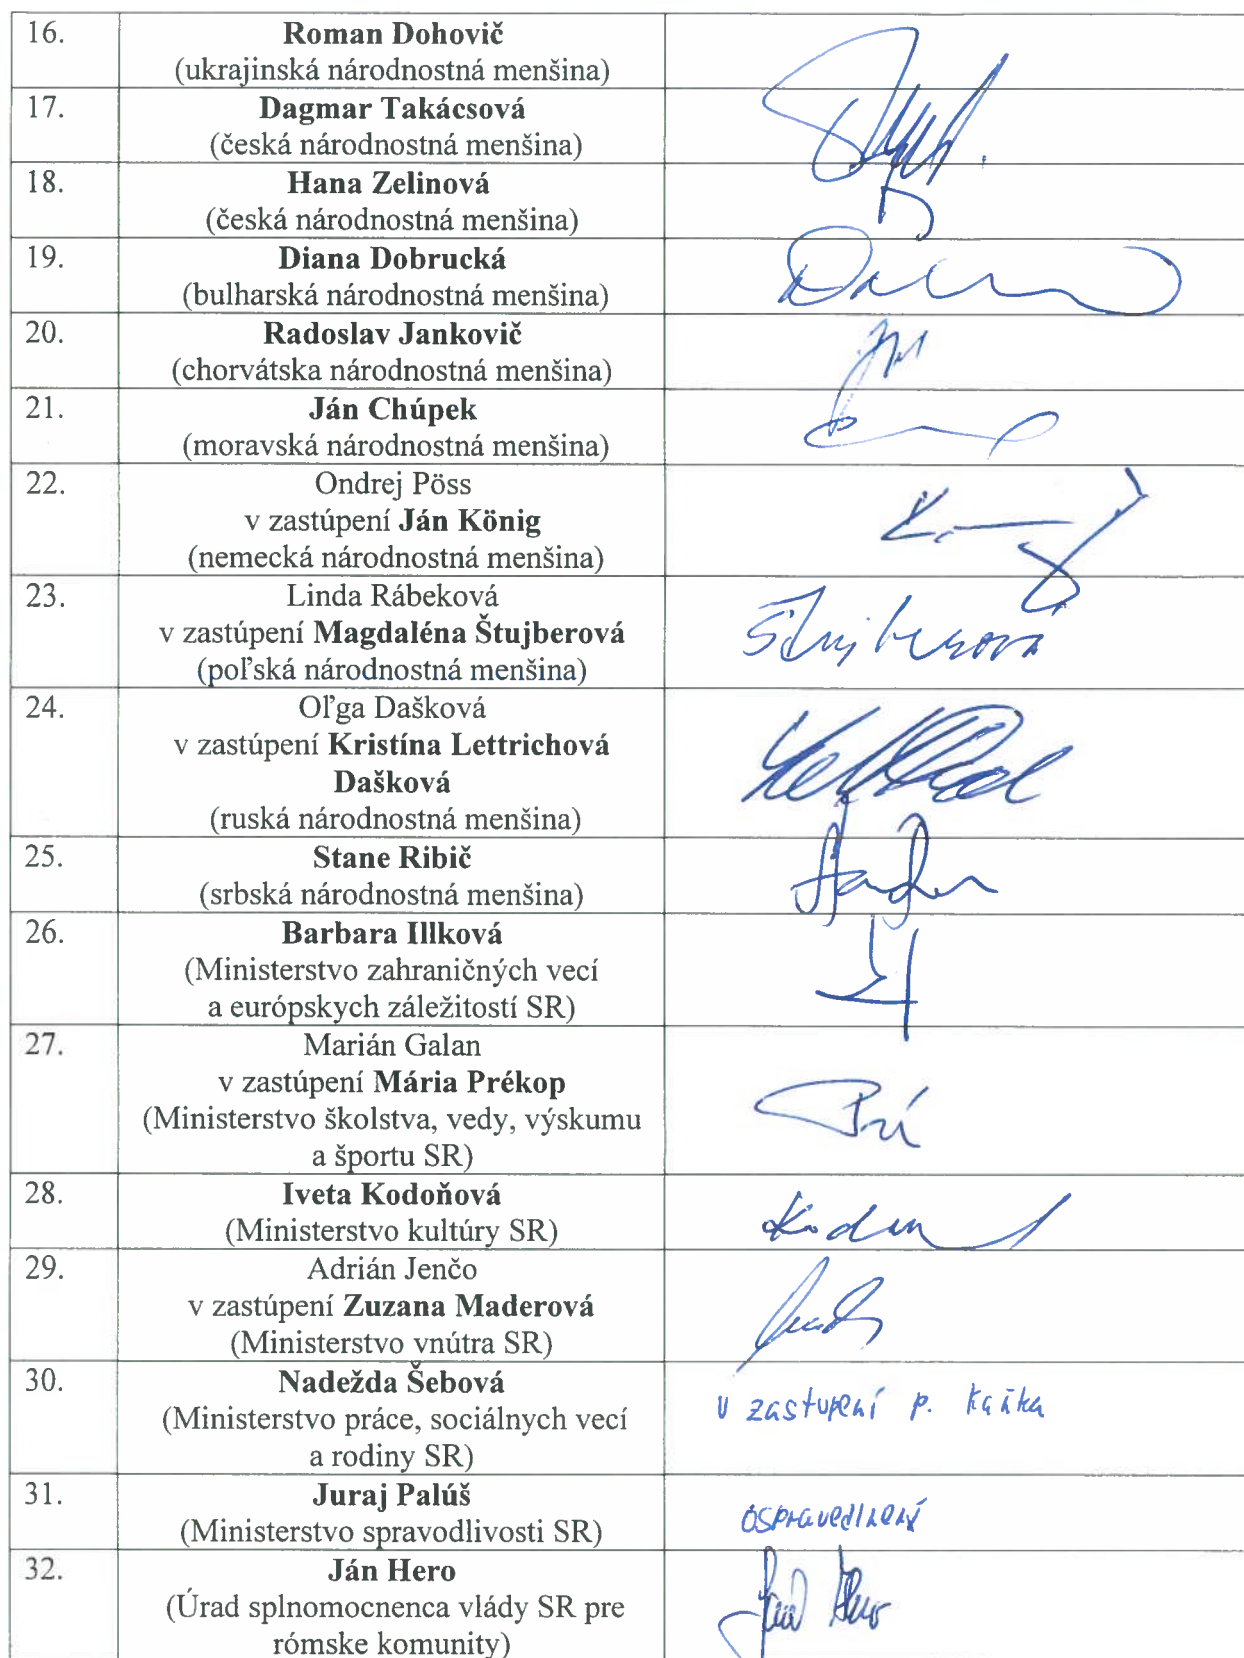 16. Roman Dohovič
(ukrajinská národnostná menšina)
17. Dagmar Takácsová
(česká národnostná menšina)
18. Hana Zelinová
(česká národnostná menšina)
19. Diana Dobrucká
(bulharská národnostná menšina)
20. Radoslav Jankovič
(chorvátska národnostná menšina)
21. Ján Chúpek
(moravská národnostná menšina)
22. Ondrej Pöss
v zastúpení Ján König
(nemecká národnostná menšina)
23. Linda Rábeková
v zastúpení Magdaléna Štujberová
(poľská národnostná menšina)
Štujberová
24. Oľga Dašková
v zastúpení Kristína Lettrichová
Dašková
(ruská národnostná menšina)
25. Stane Ribič
(srbská národnostná menšina)
26. Barbara Illková
(Ministerstvo zahraničných vecí
a európskych záležitostí SR)
27. Marián Galan
v zastúpení Mária Prékop
(Ministerstvo školstva, vedy, výskumu
a športu SR)
28. Iveta Kodoňová
(Ministerstvo kultúry SR)
29. Adrián Jenčo
v zastúpení Zuzana Maderová
(Ministerstvo vnútra SR)
30. Nadežda Šebová
(Ministerstvo práce, sociálnych vecí
a rodiny SR)
v zastupení p.
31. Juraj Palúš
(Ministerstvo spravodlivosti SR)
ospravedlnený
32. Ján Hero
(Úrad splnomocnenca vlády SR pre
rómske komunity)